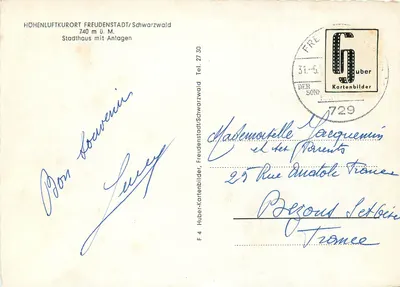 HÖHENLUFTKURORT FREUDENSTADT/Schwarzwald
740 m ü. M.
Stadthaus mit Anlagen
Bon souvenir
F 4 Huber-Kartenbilder, Freudenstadt/Schwarzwald Tel. 27 30
FRE
31.-5.
DER
729
Huber
Kartenbilder
Mademoiselle Jacquemin
et ses Parents
25 Rue Anatole France
Bezons Set Oise
France